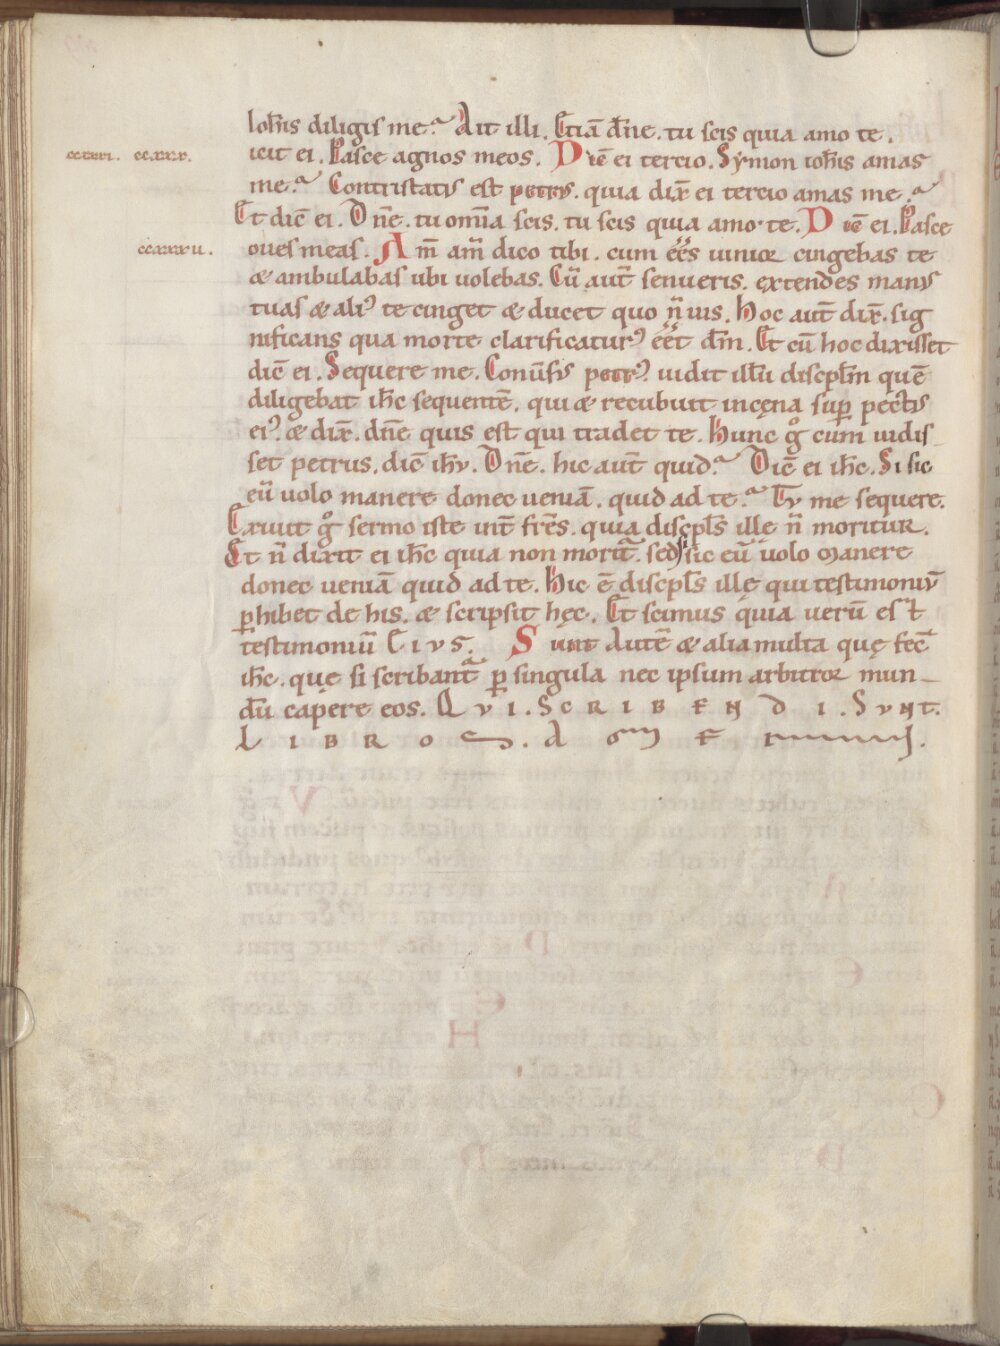 Ioh̄is diligis me? Ait illi. Etiā dn̄e. tu scis quia amo te.
ccxxvi. ccxxxv. icit ei. Pasce agnos meos. Dic̄ ei tercio. Symon ioh̄is amas
me? Contristatus est petrus. quia dix̄ ei tercio amas me?
Et dic̄ ei. Dn̄e. tu om̄ia scis. tu scis quia amo te. Dic̄ ei. Pasce
ccxxxvii. oues meas. Am̄ am̄ dico tibi. cum ēēs iunior cingebas te
& ambulabas ubi uolebas. Cū aut̄ senueris. extendes manus
tuas & aliꝰ te cinget & ducet quo n̄ uis. Hoc aut̄ dix̄. sig
nificans qua morte clarificaturꝰ ēēt dm̄. Et cū hoc dixisset
dic̄ ei. Sequere me. Conuersus petrꝰ. uidit illū discplm̄ quē
diligebat ihc̄ sequentē. qui & recubuit in cęna sup̄ pectus
eiꝰ. & dix̄. dn̄e quis est qui tradet te. Hunc gͦ cum uidis
set petrus. dic̄ ihu. Dn̄e. hic aut̄ quid? Dic̄ ei ihc̄. Si sic
eū uolo manere donec ueniā. quid ad te? Tu me sequere.
Exiuit gͦ sermo iste int̄ fr̄es. quia discpls̄ ille n̄ moritur.
Et n̄ dixit ei ihc̄ quia non morit᷑. sed si sic eū uolo manere
donec ueniā quid ad te. Hic ē discpls̄ ille qui testimoniū
ꝑhibet de his. & scripsit hęc. Et scimus quia uerū est
testimoniū Eius. Sunt Autē & alia multa quę fec̄
ihc̄. que si scribant᷑ ꝑ singula nec ipsum arbitror mun
dū capere eos. Qui. Scribendi. Sunt.
Libros. Amen.